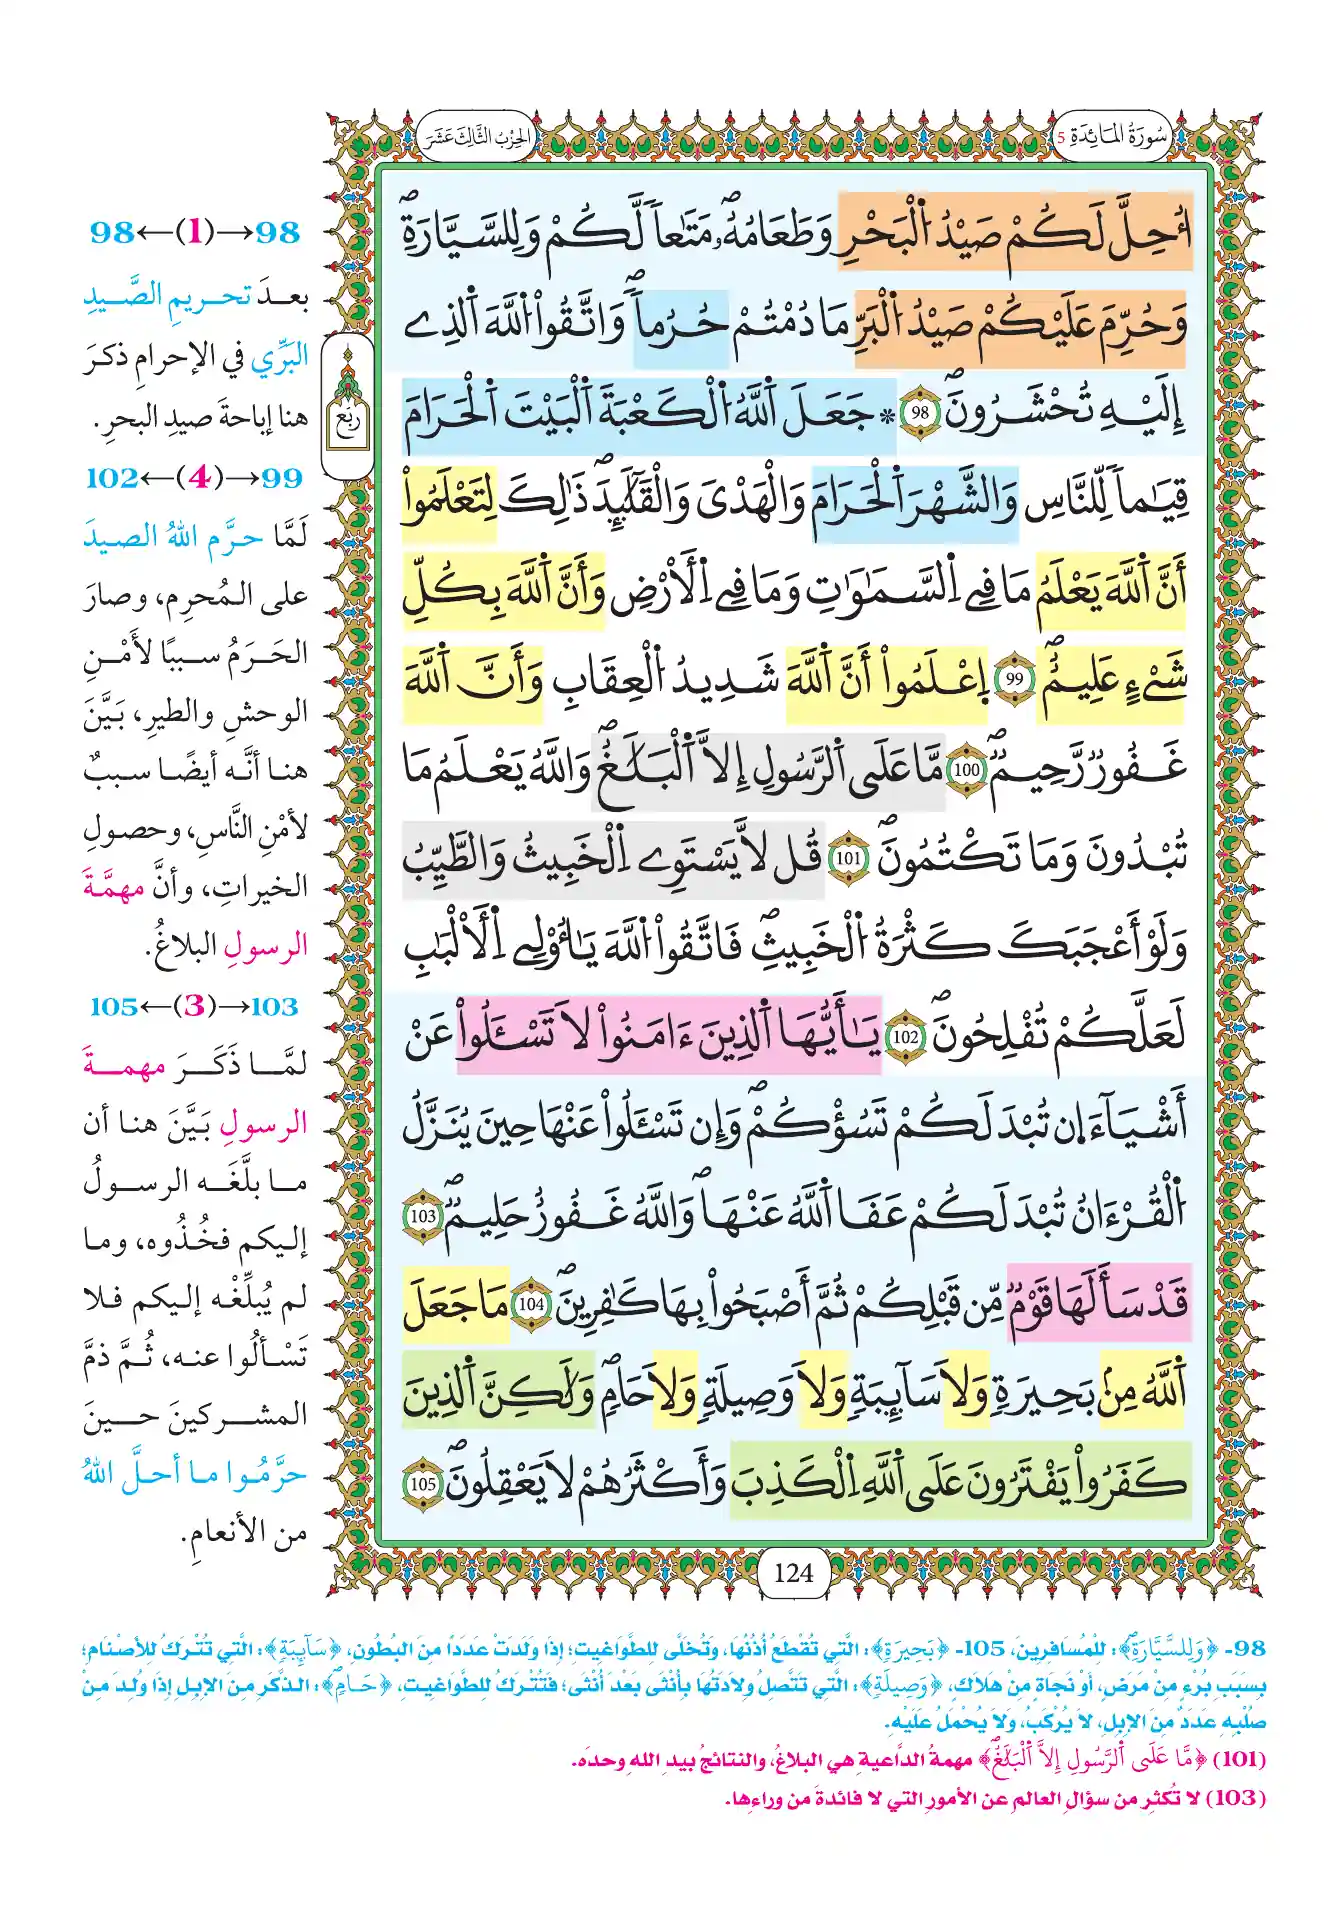 سُورَةُ المَائِدَةِ 5
الحِزْبُ الثَّالِثَ عَشَرَ
اُحِلَّ لَكُمْ صَيْدُ اُلْبَحْرِ وَطَعَامُهُۥ مَتَٰعاٗ لَّكُمْ وَلِلسَّيَّارَةِۖ
وَحُرِّمَ عَلَيْكُمْ صَيْدُ اُلْبَرِّ مَا دُمْتُمْ حُرُماٗۖ وَاتَّقُواْ اُللَّهَ اَلذِے
إِلَيْهِ تُحْشَرُونَۖ 98 * جَعَلَ اَللَّهُ اُلْكَعْبَةَ اَلْبَيْتَ اَلْحَرَامَ
قِيَٰماٗ لِّلنَّاسِ وَالشَّهْرَ اَلْحَرَامَ وَالْهَدْىَ وَالْقَلَٰٓئِدَۖ ذَٰلِكَ لِتَعْلَمُواْ
أَنَّ اَللَّهَ يَعْلَمُ مَا فِے اِلسَّمَٰوَٰتِ وَمَا فِے اِلْأَرْضِ وَأَنَّ اَللَّهَ بِكُلِّ
شَےْءٍ عَلِيمٌۖ 99 اِعْلَمُواْ أَنَّ اَللَّهَ شَدِيدُ اُلْعِقَابِ وَأَنَّ اَللَّهَ
غَفُورٞ رَّحِيمٞۖ 100 مَّا عَلَى اَلرَّسُولِ إِلاَّ اَلْبَلَٰغُۖ وَاللَّهُ يَعْلَمُ مَا
تُبْدُونَ وَمَا تَكْتُمُونَۖ 101 قُل لاَّ يَسْتَوِے اِلْخَبِيثُ وَالطَّيِّبُ
وَلَوْ أَعْجَبَكَ كَثْرَةُ اُلْخَبِيثِۖ فَاتَّقُواْ اُللَّهَ يَٰأُوْلِے اِلْأَلْبَٰبِ
لَعَلَّكُمْ تُفْلِحُونَۖ 102 يَٰأَيُّهَا اَلذِينَ ءَامَنُواْ لاَ تَسْـَٔلُواْ عَنْ
أَشْيَآءَ ان تُبْدَ لَكُمْ تَسُؤْكُمْۖ وَإِن تَسْـَٔلُواْ عَنْهَا حِينَ يُنَزَّلُ
اُلْقُرْءَانُ تُبْدَ لَكُمْ عَفَا اَللَّهُ عَنْهَاۖ وَاللَّهُ غَفُورٌ حَلِيمٞۖ 103
قَدْ سَأَلَهَا قَوْمٞ مِّن قَبْلِكُمْ ثُمَّ أَصْبَحُواْ بِهَا كَٰفِرِينَۖ 104 مَا جَعَلَ
اَللَّهُ مِنۢ بَحِيرَةٖ وَلاَ سَآئِبَةٖ وَلاَ وَصِيلَةٖ وَلاَ حَامٖ وَلَٰكِنَّ اَلذِينَ
كَفَرُواْ يَفْتَرُونَ عَلَى اَللَّهِ اِلْكَذِبَ وَأَكْثَرُهُمْ لاَ يَعْقِلُونَۖ 105
124
ربع
98←(1)→98
بعدَ تحريمِ الصَّيدِ
البَرِّي في الإحرامِ ذكرَ
هنا إباحةَ صيدِ البحرِ.
102←(4)→99
لَمَّا حرَّم اللهُ الصيدَ
على المُحرِمِ، وصارَ
الحَرَمُ سببًا لأَمْنِ
الوحشِ والطيرِ، بَيَّنَ
هنا أنَّه أيضًا سببٌ
لأمْنِ النَّاسِ، وحصولِ
الخيراتِ، وأنَّ مهمَّةَ
الرسولِ البلاغُ.
105←(3)→103
لمَّا ذَكَرَ مهمةَ
الرسولِ بَيَّنَ هنا أن
ما بلَّغَه الرسولُ
إليكم فخُذُوه، وما
لم يُبلِّغْه إليكم فلا
تَسْألُوا عنه، ثُمَّ ذمَّ
المشركينَ حينَ
حرَّمُوا ما أحلَّ اللهُ
من الأنعامِ.
98- ﴿وَلِلسَّيَّارَةِۖ﴾: لِلْمُسَافِرِينَ، 105- ﴿بَحِيرَةٖ﴾: الَّتِي تُقْطَعُ أُذُنُهَا، وَتُخَلَّى لِلطَّوَاغِيتِ؛ إِذَا وَلَدَتْ عَدَدًا مِنَ البُطُونِ، ﴿سَآئِبَةٖ﴾: الَّتِي تُتْرَكُ لِلأَصْنَامِ؛
بِسَبَبِ بُرْءٍ مِنْ مَرَضٍ، أَوْ نَجَاةٍ مِنْ هَلَاكٍ، ﴿وَصِيلَةٖ﴾: الَّتِي تَتَّصِلُ وِلَادَتُهَا بِأُنْثَى بَعْدَ أُنْثَى؛ فَتُتْرَكُ لِلطَّوَاغِيتِ، ﴿حَامٖۖ﴾: الذَّكَرِ مِنَ الإِبِلِ إِذَا وُلِدَ مِنْ
صُلْبِهِ عَدَدٌ مِنَ الإِبِلِ، لَا يُرْكَبُ، وَلَا يُحْمَلُ عَلَيْهِ.
(101) ﴿مَّا عَلَى اَلرَّسُولِ إِلاَّ اَلْبَلَٰغُۖ﴾ مهمةُ الدَّاعيةِ هي البلاغُ، والنتائجُ بيدِ اللهِ وحدَه.
(103) لا تُكثِر من سؤالِ العالمِ عن الأمورِ التي لا فائدةَ من وراءِها.